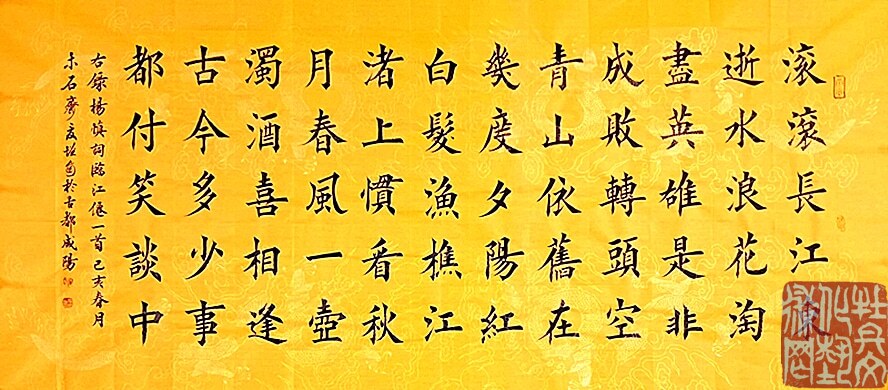 滚滾長江東
逝水浪花淘
盡英雄是非
成敗轉頭空
青山依舊在
幾度夕陽紅
白髮漁樵江
渚上慣看秋
月春風一壺
濁酒喜相逢
古今多少事
都付笑談中
右錄楊慎詞臨江仙一首己亥春月
石齋於古都咸陽